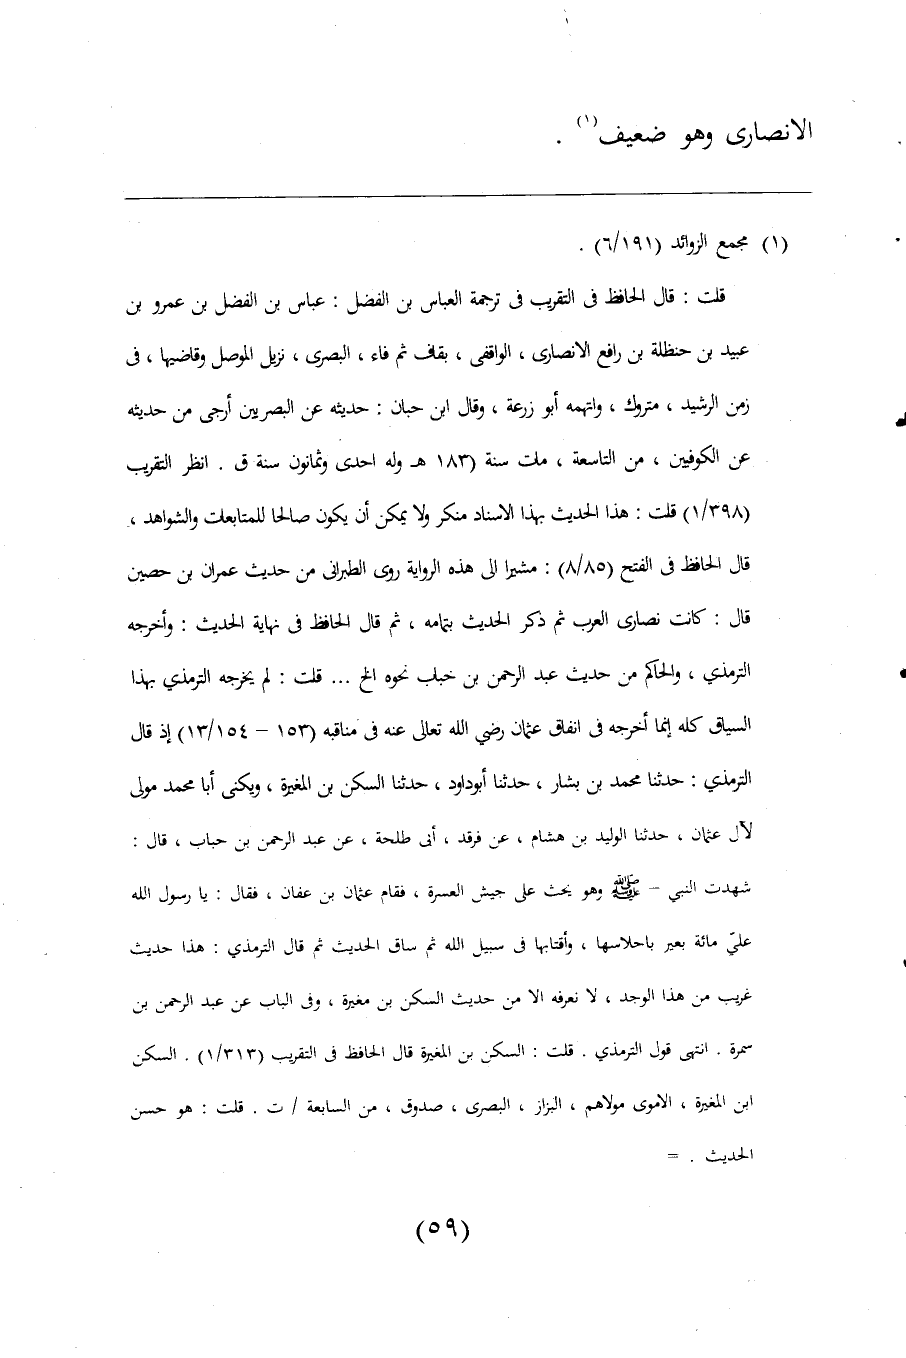 الانصارى وهو ضعيف(١) .
(١) مجمع الزوائد (٦/١٩١) .
قلت : قال الحافظ فى التقريب فى ترجمة العباس بن الفضل : عباس بن الفضل بن عمرو بن
عبيد بن حنظلة بن رافع الانصارى ، الواقفى ، بقاف ثم فاء ، البصرى ، نزيل الموصل وقاضيها ، فى
زمن الرشيد ، متروك ، واتهمه أبو زرعة ، وقال ابن حبان : حديثه عن البصريين أرجى من حديثه
عن الكوفيين ، من التاسعة ، مات سنة (١٨٣ هـ وله احدى وثمانون سنة ق . انظر التقريب
(١/٣٩٨) قلت : هذا الحديث بهذا الاسناد منكر ولا يمكن أن يكون صالحا للمتابعات والشواهد ،
قال الحافظ فى الفتح (٨/٨٥) : مشيرا الى هذه الرواية روى الطبرانى من حديث عمران بن حصين
قال : كانت نصارى العرب ثم ذكر الحديث بتمامه ، ثم قال الحافظ فى نهاية الحديث : وأخرجه
الترمذي ، والحاكم من حديث عبد الرحمن بن خباب نحوه الخ ... قلت : لم يخرجه الترمذي بهذا
السياق كله إنما أخرجه فى انفاق عثمان رضي الله تعالى عنه فى مناقبه (١٥٣ – ١٣/١٥٤) إذ قال
الترمذي : حدثنا محمد بن بشار ، حدثنا أبوداود ، حدثنا السكن بن المغيرة ، ويكنى أبا محمد مولى
لآل عثمان ، حدثنا الوليد بن هشام ، عن فرقد ، أبى طلحة ، عن عبد الرحمن بن حباب ، قال :
شهدت النبي – ﷺ وهو يحث على جيش العسرة ، فقام عثمان بن عفان ، فقال : يا رسول الله
عليّ مائة بعير باحلاسها ، وأقتابها فى سبيل الله ثم ساق الحديث ثم قال الترمذي : هذا حديث
غريب من هذا الوجد ، لا نعرفه الا من حديث السكن بن مغيرة ، وفى الباب عن عبد الرحمن بن
سمرة . انتهى قول الترمذي . قلت : السكن بن المغيرة قال الحافظ فى التقريب (١/٣١٣) . السكن
ابن المغيرة ، الاموى مولاهم ، البزاز ، البصرى ، صدوق ، من السابعة / ت . قلت : هو حسن
الحديث . =
(٥٩)